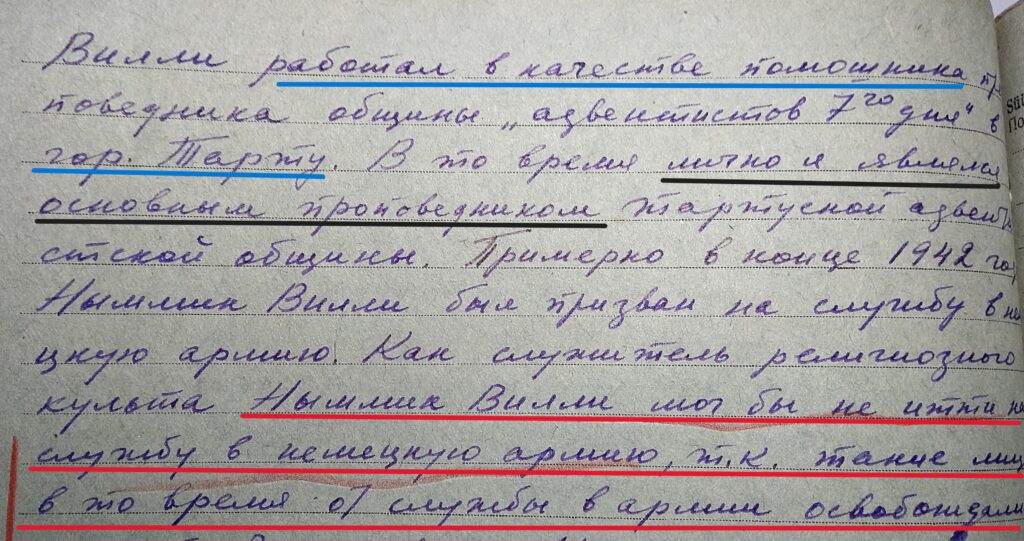 Вилли работал в качестве помошника пр
поведника общины „адвентистов 7го дня" в
гор. Тарту. В то время лично я являлся
основным проповедником тартуской адвенти
стской общины. Примерно в конце 1942 год
Нымлик Вилли был призван на службу в не
цкую армию. Как служитель религиозного
культа Нымлик Вилли мог бы не итти на
службу в немецкую армию, т.к. такие лиц
в то время от службы в армии освобождали